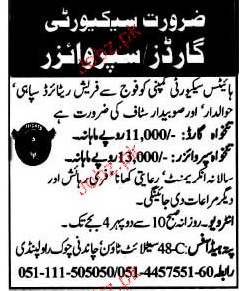 ضرورت سیکیورٹی
گارڈز/سپروائزر
ہائیٹس سیکیورٹی کمپنی کو فوج سے فریش ریٹائرڈ سپاہی،
حوالدار، اور صوبیدار سٹاف کی ضرورت ہے
تنخواہ گارڈ: -/11,000 روپے ماہانہ۔
تنخواہ سپروائزر: -/13,000 روپے ماہانہ۔
سالانہ انکریمنٹ، رعایتی کھانا، فری رہائش اور
دیگر مراعات دی جائینگی۔
انٹرویو۔ روزانہ صبح 10 سے دوپہر 4 بجے تک۔
پتہ ہیڈ آفس: 48-C سیٹلائٹ ٹاؤن چاندنی چوک راولپنڈی
رابطہ: 60-051-4457551/051-111-505050